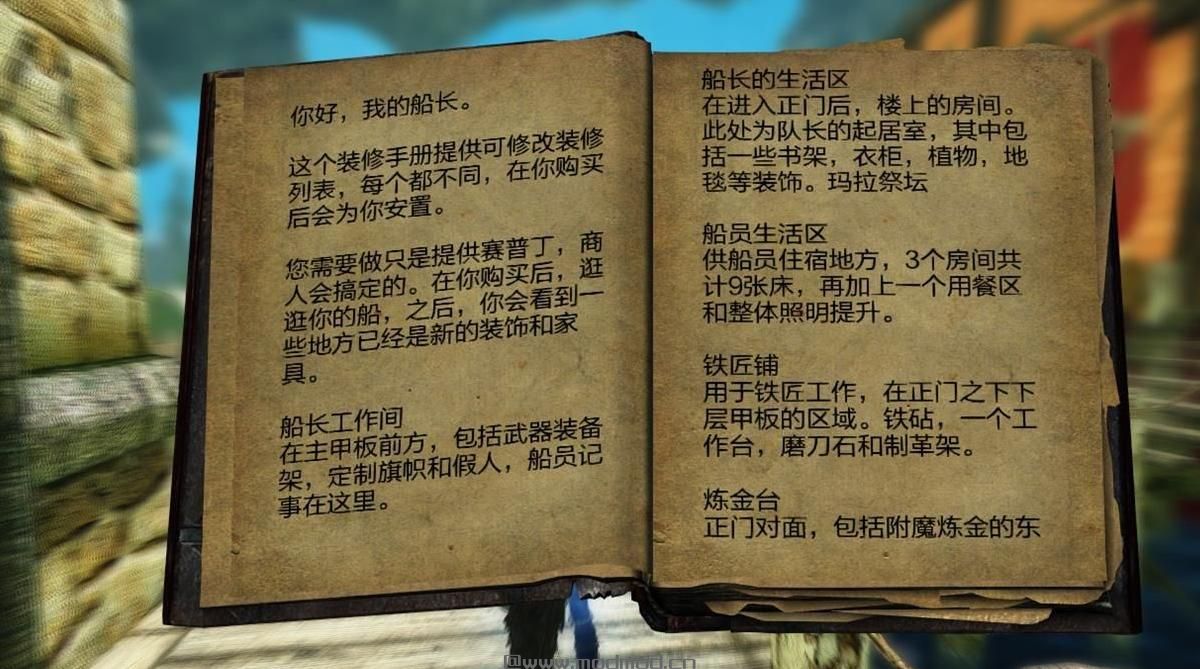 你好，我的船长。
这个装修手册提供可修改装修
列表，每个都不同，在你购买
后会为你安置。
您需要做只是提供赛普丁，商
人会搞定的。在你购买后，逛
逛你的船，之后，你会看到一
些地方已经是新的装饰和家
具。
船长工作间
在主甲板前方，包括武器装备
架，定制旗帜和假人，船员记
事在这里。
船长的生活区
在进入正门后，楼上的房间。
此处为队长的起居室，其中包
括一些书架，衣柜，植物，地
毯等装饰。玛拉祭坛
船员生活区
供船员住宿地方，3个房间共
计9张床，再加上一个用餐区
和整体照明提升。
铁匠铺
用于铁匠工作，在正门之下下
层甲板的区域。铁砧，一个工
作台，磨刀石和制革架。
炼金台
正门对面，包括附魔炼金的东
@www.modmod.cn